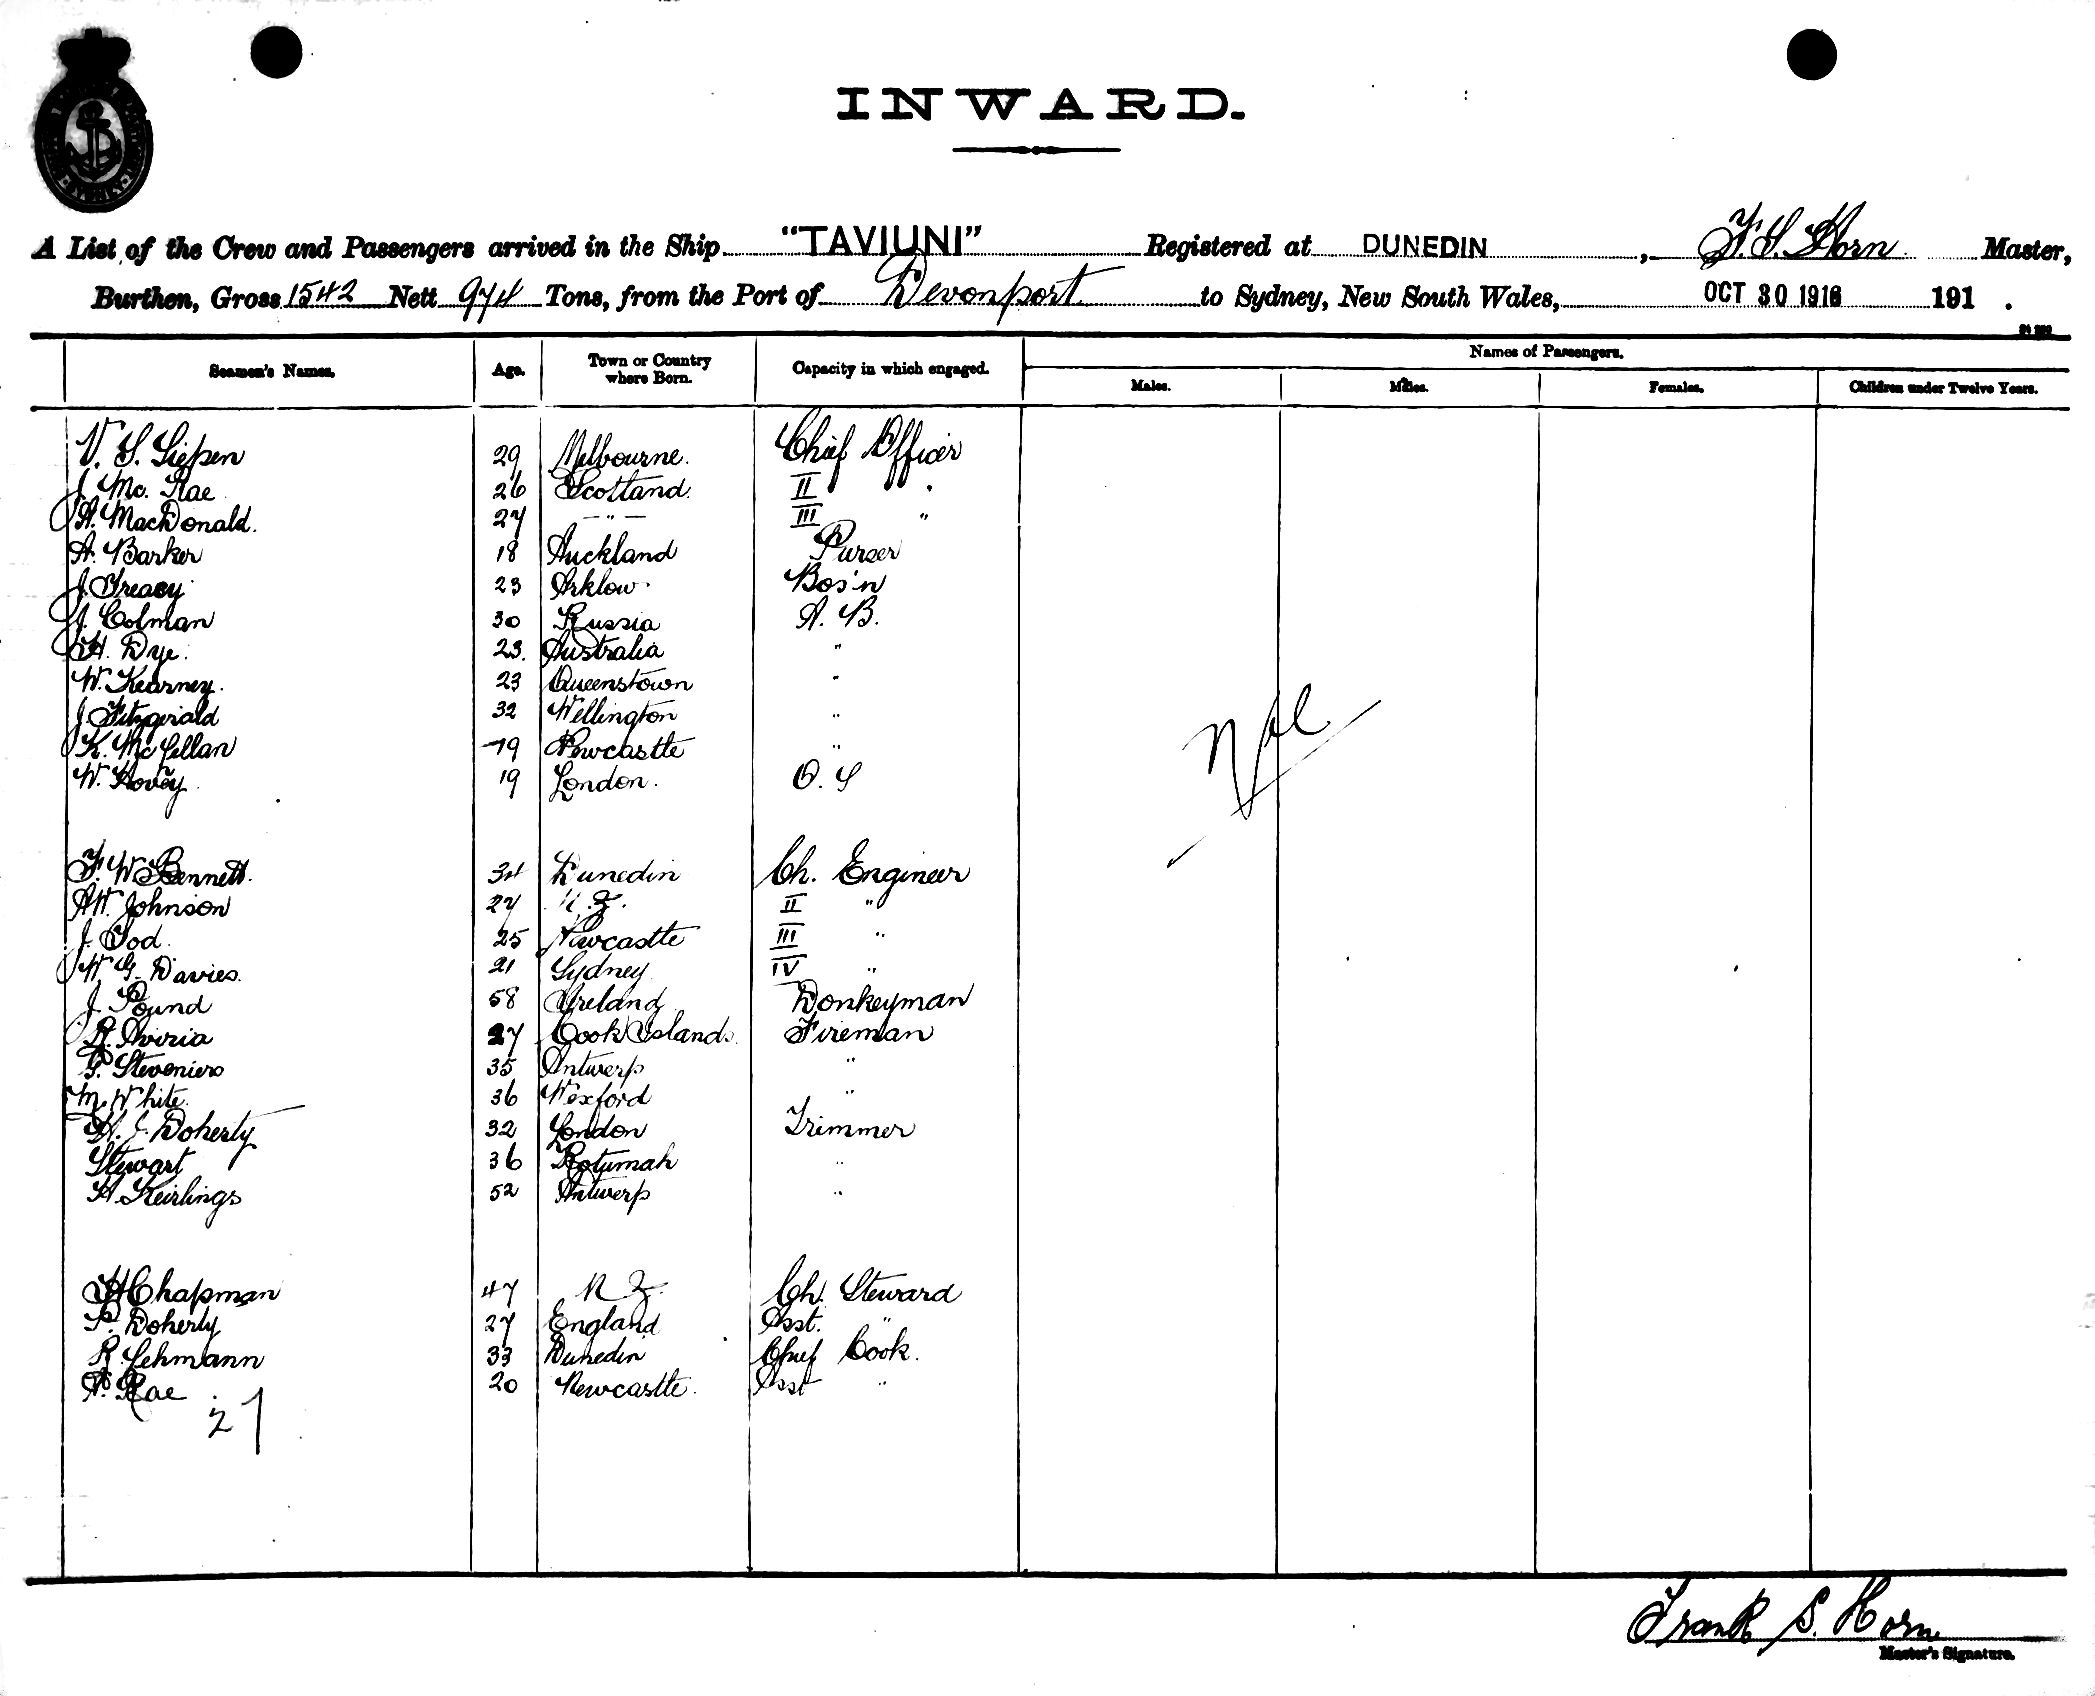 INWARD.
A List of the Crew and Passengers arrived in the Ship "TAVIUNI" Registered at DUNEDIN, F. S. Horn Master,
Burthen, Gross 1542 Nett 974 Tons, from the Port of Devonport to Sydney, New South Wales, OCT 30 1916 191 .
Seamen's Names. Age. Town or Country where Born. Capacity in which engaged. Names of Passengers.
Males. Males. Females. Children under Twelve Years.
V. S. Liepen 29 Melbourne. Chief Officer
J. Mc. Rae 26 Scotland. II "
A. MacDonald. 27 — " — III "
A. Barker 18 Auckland Purser
J. Treacy 23 Arklow. Bos'n
J. Colman 30 Russia A. B.
H. Dye. 23. Australia "
W. Kearney. 23 Queenstown "
J. Fitzgerald 32 Wellington "
K. McLellan 19 Newcastle "
W. Hovey 19 London. O. S
Nil
F. W Bennett. 34 Dunedin Ch. Engineer
A W. Johnson 27 N. Z. II "
J. Tod. 25 Newcastle III "
W. G. Davies. 21 Sydney IV "
J. Pound 58 Ireland Donkeyman
27 Cook Islands. Fireman
P. Steveniers 35 Antwerp "
M. White. 36 Wexford "
H. J. Doherty 32 London Trimmer
Stewart 36 Rotumah "
H. Keirlings 52 Antwerp "
H Chapman 47 N Z. Ch. Steward
P. Doherty 27 England Asst. "
R. Lehmann 33 Dunedin Chief Cook.
A. Rae 20 Newcastle. Asst "
27
Frank S. Horn
Master's Signature.